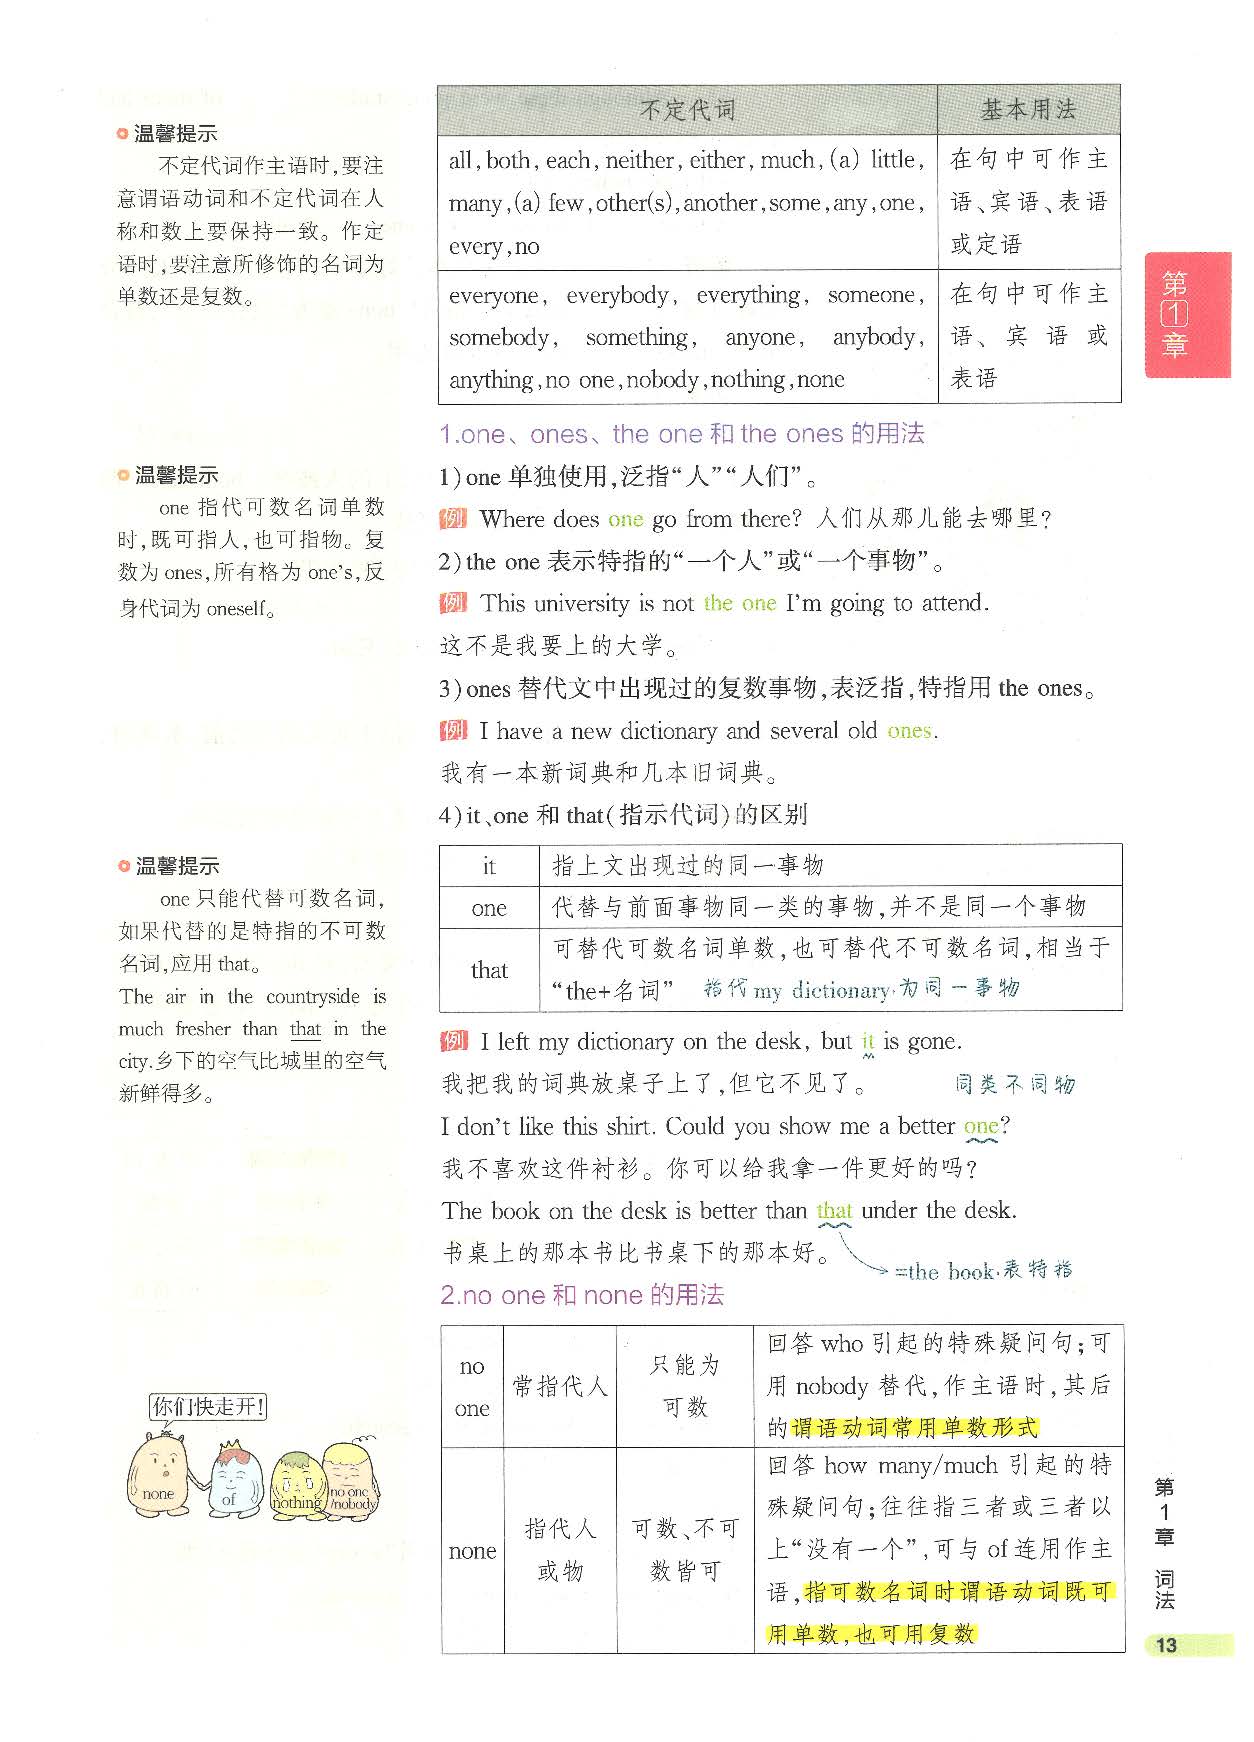 温馨提示
不定代词作主语时,要注
意谓语动词和不定代词在人
称和数上要保持一致。作定
语时,要注意所修饰的名词为
单数还是复数。
不定代词
基本用法
all,both,each,neither,either,much,(a) little,
many,(a) few,other(s),another,some,any,one,
every,no
在句中可作主
语、宾语、表语
或定语
everyone, everybody, everything, someone,
somebody, something, anyone, anybody,
anything,no one,nobody,nothing,none
在句中可作主
语、宾语或
表语
第
1
章
1.one、ones、the one 和 the ones 的用法
1)one 单独使用,泛指“人”“人们”。
例 Where does one go from there? 人们从那儿能去哪里?
2)the one 表示特指的“一个人”或“一个事物”。
例 This university is not the one I'm going to attend.
这不是我要上的大学。
3)ones 替代文中出现过的复数事物,表泛指,特指用 the ones。
例 I have a new dictionary and several old ones.
我有一本新词典和几本旧词典。
4)it、one 和 that(指示代词)的区别
温馨提示
one 指代可数名词单数
时,既可指人,也可指物。复
数为 ones,所有格为 one's,反
身代词为 oneself。
it
指上文出现过的同一事物
one
代替与前面事物同一类的事物,并不是同一个事物
that
可替代可数名词单数,也可替代不可数名词,相当于
“the+名词” 指代 my dictionary·为同一事物
例 I left my dictionary on the desk, but it is gone.
我把我的词典放桌子上了,但它不见了。 同类不同物
I don't like this shirt. Could you show me a better one?
我不喜欢这件衬衫。你可以给我拿一件更好的吗?
The book on the desk is better than that under the desk.
书桌上的那本书比书桌下的那本好。
=the book·表特指
温馨提示
one 只能代替可数名词,
如果代替的是特指的不可数
名词,应用 that。
The air in the countryside is
much fresher than that in the
city.乡下的空气比城里的空气
新鲜得多。
2.no one 和 none 的用法
no
one
常指代人
只能为
可数
回答 who 引起的特殊疑问句;可
用 nobody 替代,作主语时,其后
的谓语动词常用单数形式
none
指代人
或物
可数、不可
数皆可
回答 how many/much 引起的特
殊疑问句;往往指三者或三者以
上“没有一个”,可与 of 连用作主
语,指可数名词时谓语动词既可
用单数,也可用复数
你们快走开!
none
of
nothing
no one
/nobody
第
1
章
词
法
13